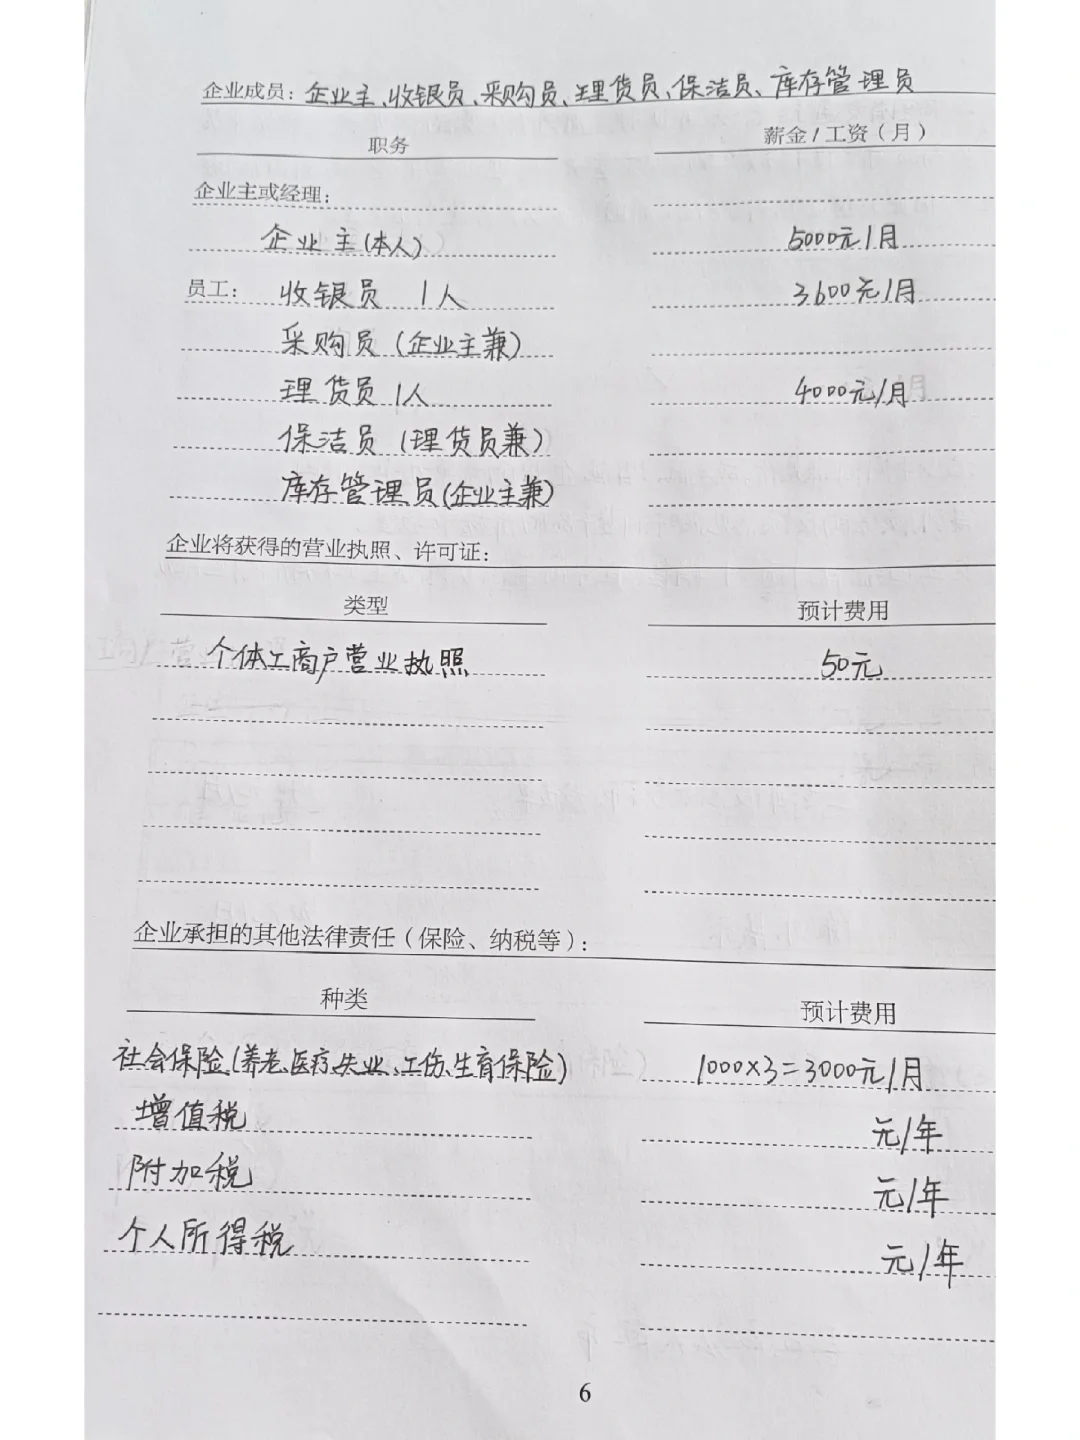 企业成员：企业主、收银员、采购员、理货员、保洁员、库存管理员
职务 薪金/工资（月）
企业主或经理：
企业主(本人) 5000元/月
员工： 收银员 1人 3600元/月
采购员（企业主兼）
理货员 1人 4000元/月
保洁员（理货员兼）
库存管理员(企业主兼)
企业将获得的营业执照、许可证：
类型 预计费用
个体工商户营业执照 50元
企业承担的其他法律责任（保险、纳税等）：
种类 预计费用
社会保险(养老、医疗、失业、工伤、生育保险) 1000×3=3000元/月
增值税 元/年
附加税 元/年
个人所得税 元/年
6